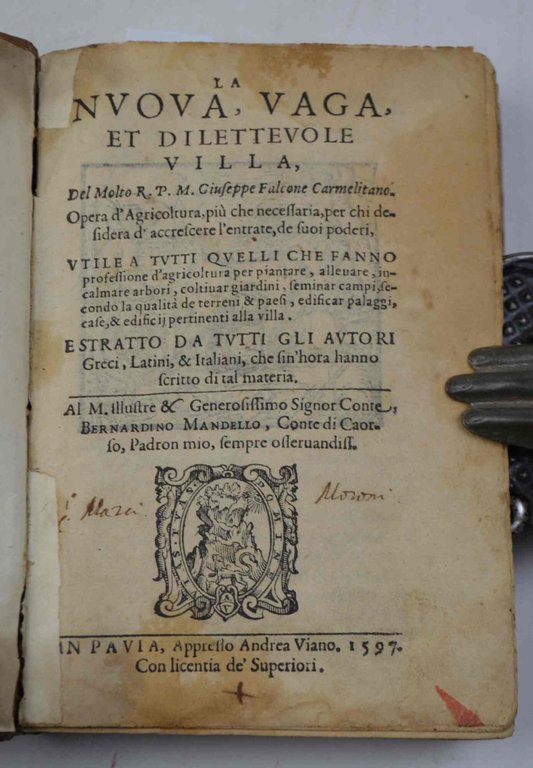 LA
NVOVA, VAGA,
ET DILETTEVOLE
VILLA,
Del Molto R. P. M. Giuseppe Falcone Carmelitano.
Opera d'Agricoltura, più che necessaria, per chi de-
sidera d'accrescere l'entrate, de suoi poderi,
VTILE A TVTTI QVELLI CHE FANNO
professione d'agricoltura per piantare, alleuare, in-
calmare arbori, coltiuar giardini, seminar campi, se-
condo la qualità de terreni & paesi, edificar palaggi,
case, & edificij pertinenti alla villa.
ESTRATTO DA TVTTI GLI AVTORI
Greci, Latini, & Italiani, che sin'hora hanno
scritto di tal materia.
Al M. Illustre & Generosissimo Signor Conte,
BERNARDINO MANDELLO, Conte di Caor-
so, Padron mio, sempre osseruandiss.
Marci Moroni
IN PAVIA, Appresso Andrea Viano. 1597.
Con licentia de' Superiori.